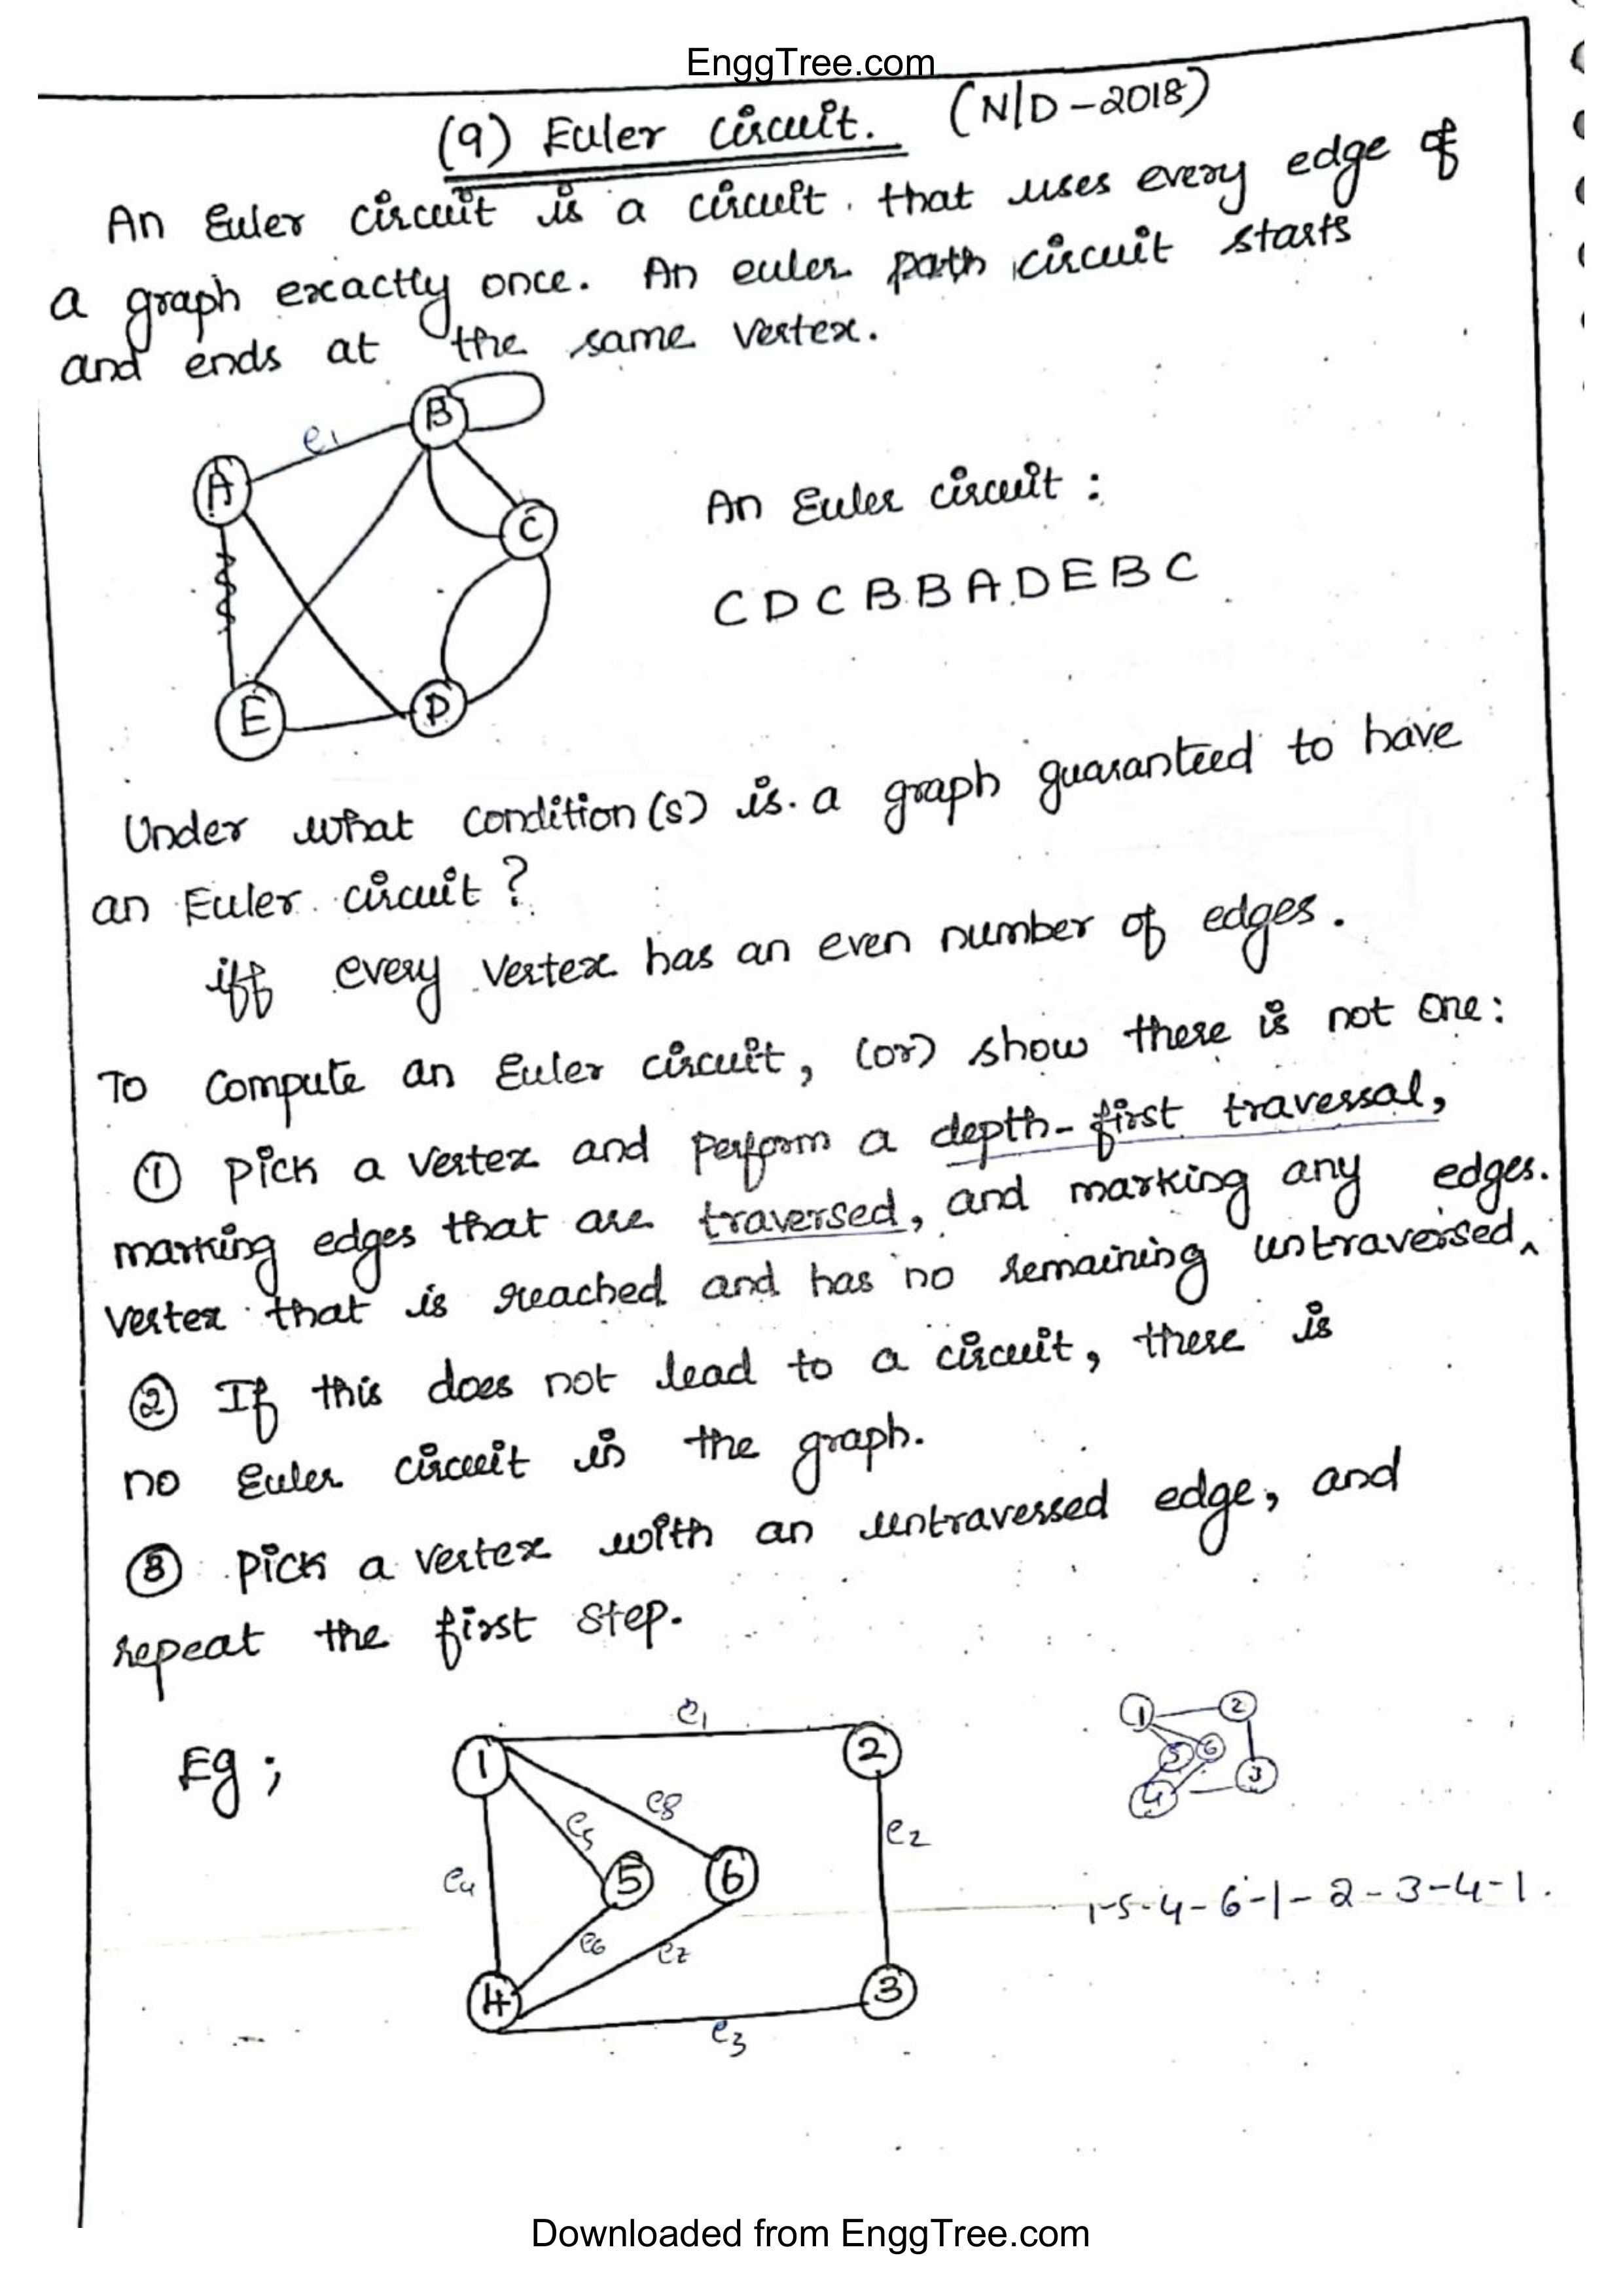 EnggTree.com
(9) Euler circuit. (N/D-2018)
An Euler circuit is a circuit. that uses every edge of
a graph excactly once. An euler path circuit starts
and ends at the same vertex.
e1
B
A
C
E
D
An Euler circuit :
C D C B B A D E B C
Under what condition(s) is a graph guaranteed to have
an Euler circuit?
iff every vertex has an even number of edges.
To compute an Euler circuit, (or) show there is not one:
① pick a vertex and perform a depth-first traversal,
marking edges that are traversed, and marking any edges.
vertex that is reached and has no remaining untraversed^
② If this does not lead to a circuit, there is
no Euler circuit in the graph.
③ pick a vertex with an untraversed edge, and
repeat the first step.
Eg ;
e1
1
2
e8
e5
e2
e4
5
6
e6
e7
4
3
e3
1
2
5
6
3
4
1-5-4-6-1-2-3-4-1.
Downloaded from EnggTree.com